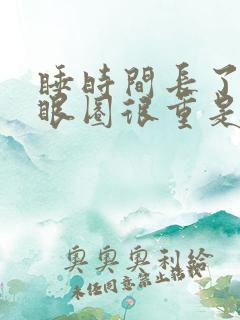 睡時間長了
眼圈很重是
奧奧奧利給
未任同意禁止轉載